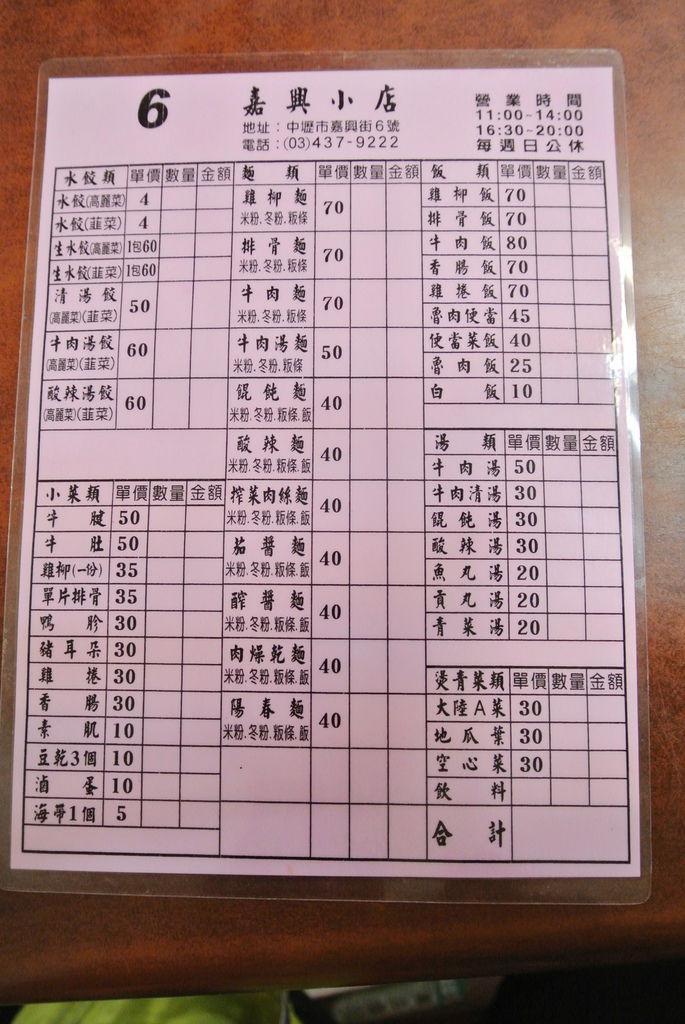 6
嘉興小店
地址：中壢市嘉興街6號
電話：(03)437-9222
營業時間
11:00~14:00
16:30~20:00
每週日公休
水餃類 單價 數量 金額
水餃(高麗菜) 4
水餃(韮菜) 4
生水餃(高麗菜) 1包60
生水餃(韮菜) 1包60
清湯餃 50
(高麗菜)(韮菜)
牛肉湯餃 60
(高麗菜)(韮菜)
酸辣湯餃 60
(高麗菜)(韮菜)
小菜類 單價 數量 金額
牛腱 50
牛肚 50
雞柳(一份) 35
單片排骨 35
鴨胗 30
豬耳朵 30
雞捲 30
香腸 30
素肌 10
豆乾3個 10
滷蛋 10
海帶1個 5
麵類 單價 數量 金額
雞柳麵 70
米粉.冬粉.粄條
排骨麵 70
米粉.冬粉.粄條
牛肉麵 70
米粉.冬粉.粄條
牛肉湯麵 50
米粉.冬粉.粄條
餛飩麵 40
米粉.冬粉.粄條.飯
酸辣麵 40
米粉.冬粉.粄條.飯
搾菜肉絲麵 40
米粉.冬粉.粄條.飯
茄醬麵 40
米粉.冬粉.粄條.飯
醡醬麵 40
米粉.冬粉.粄條.飯
肉燥乾麵 40
米粉.冬粉.粄條.飯
陽春麵 40
米粉.冬粉.粄條.飯
飯類 單價 數量 金額
雞柳飯 70
排骨飯 70
牛肉飯 80
香腸飯 70
雞捲飯 70
魯肉便當 45
便當菜飯 40
魯肉飯 25
白飯 10
湯類 單價 數量 金額
牛肉湯 50
牛肉清湯 30
餛飩湯 30
酸辣湯 30
魚丸湯 20
貢丸湯 20
青菜湯 20
燙青菜類 單價 數量 金額
大陸A菜 30
地瓜葉 30
空心菜 30
飲料
合計